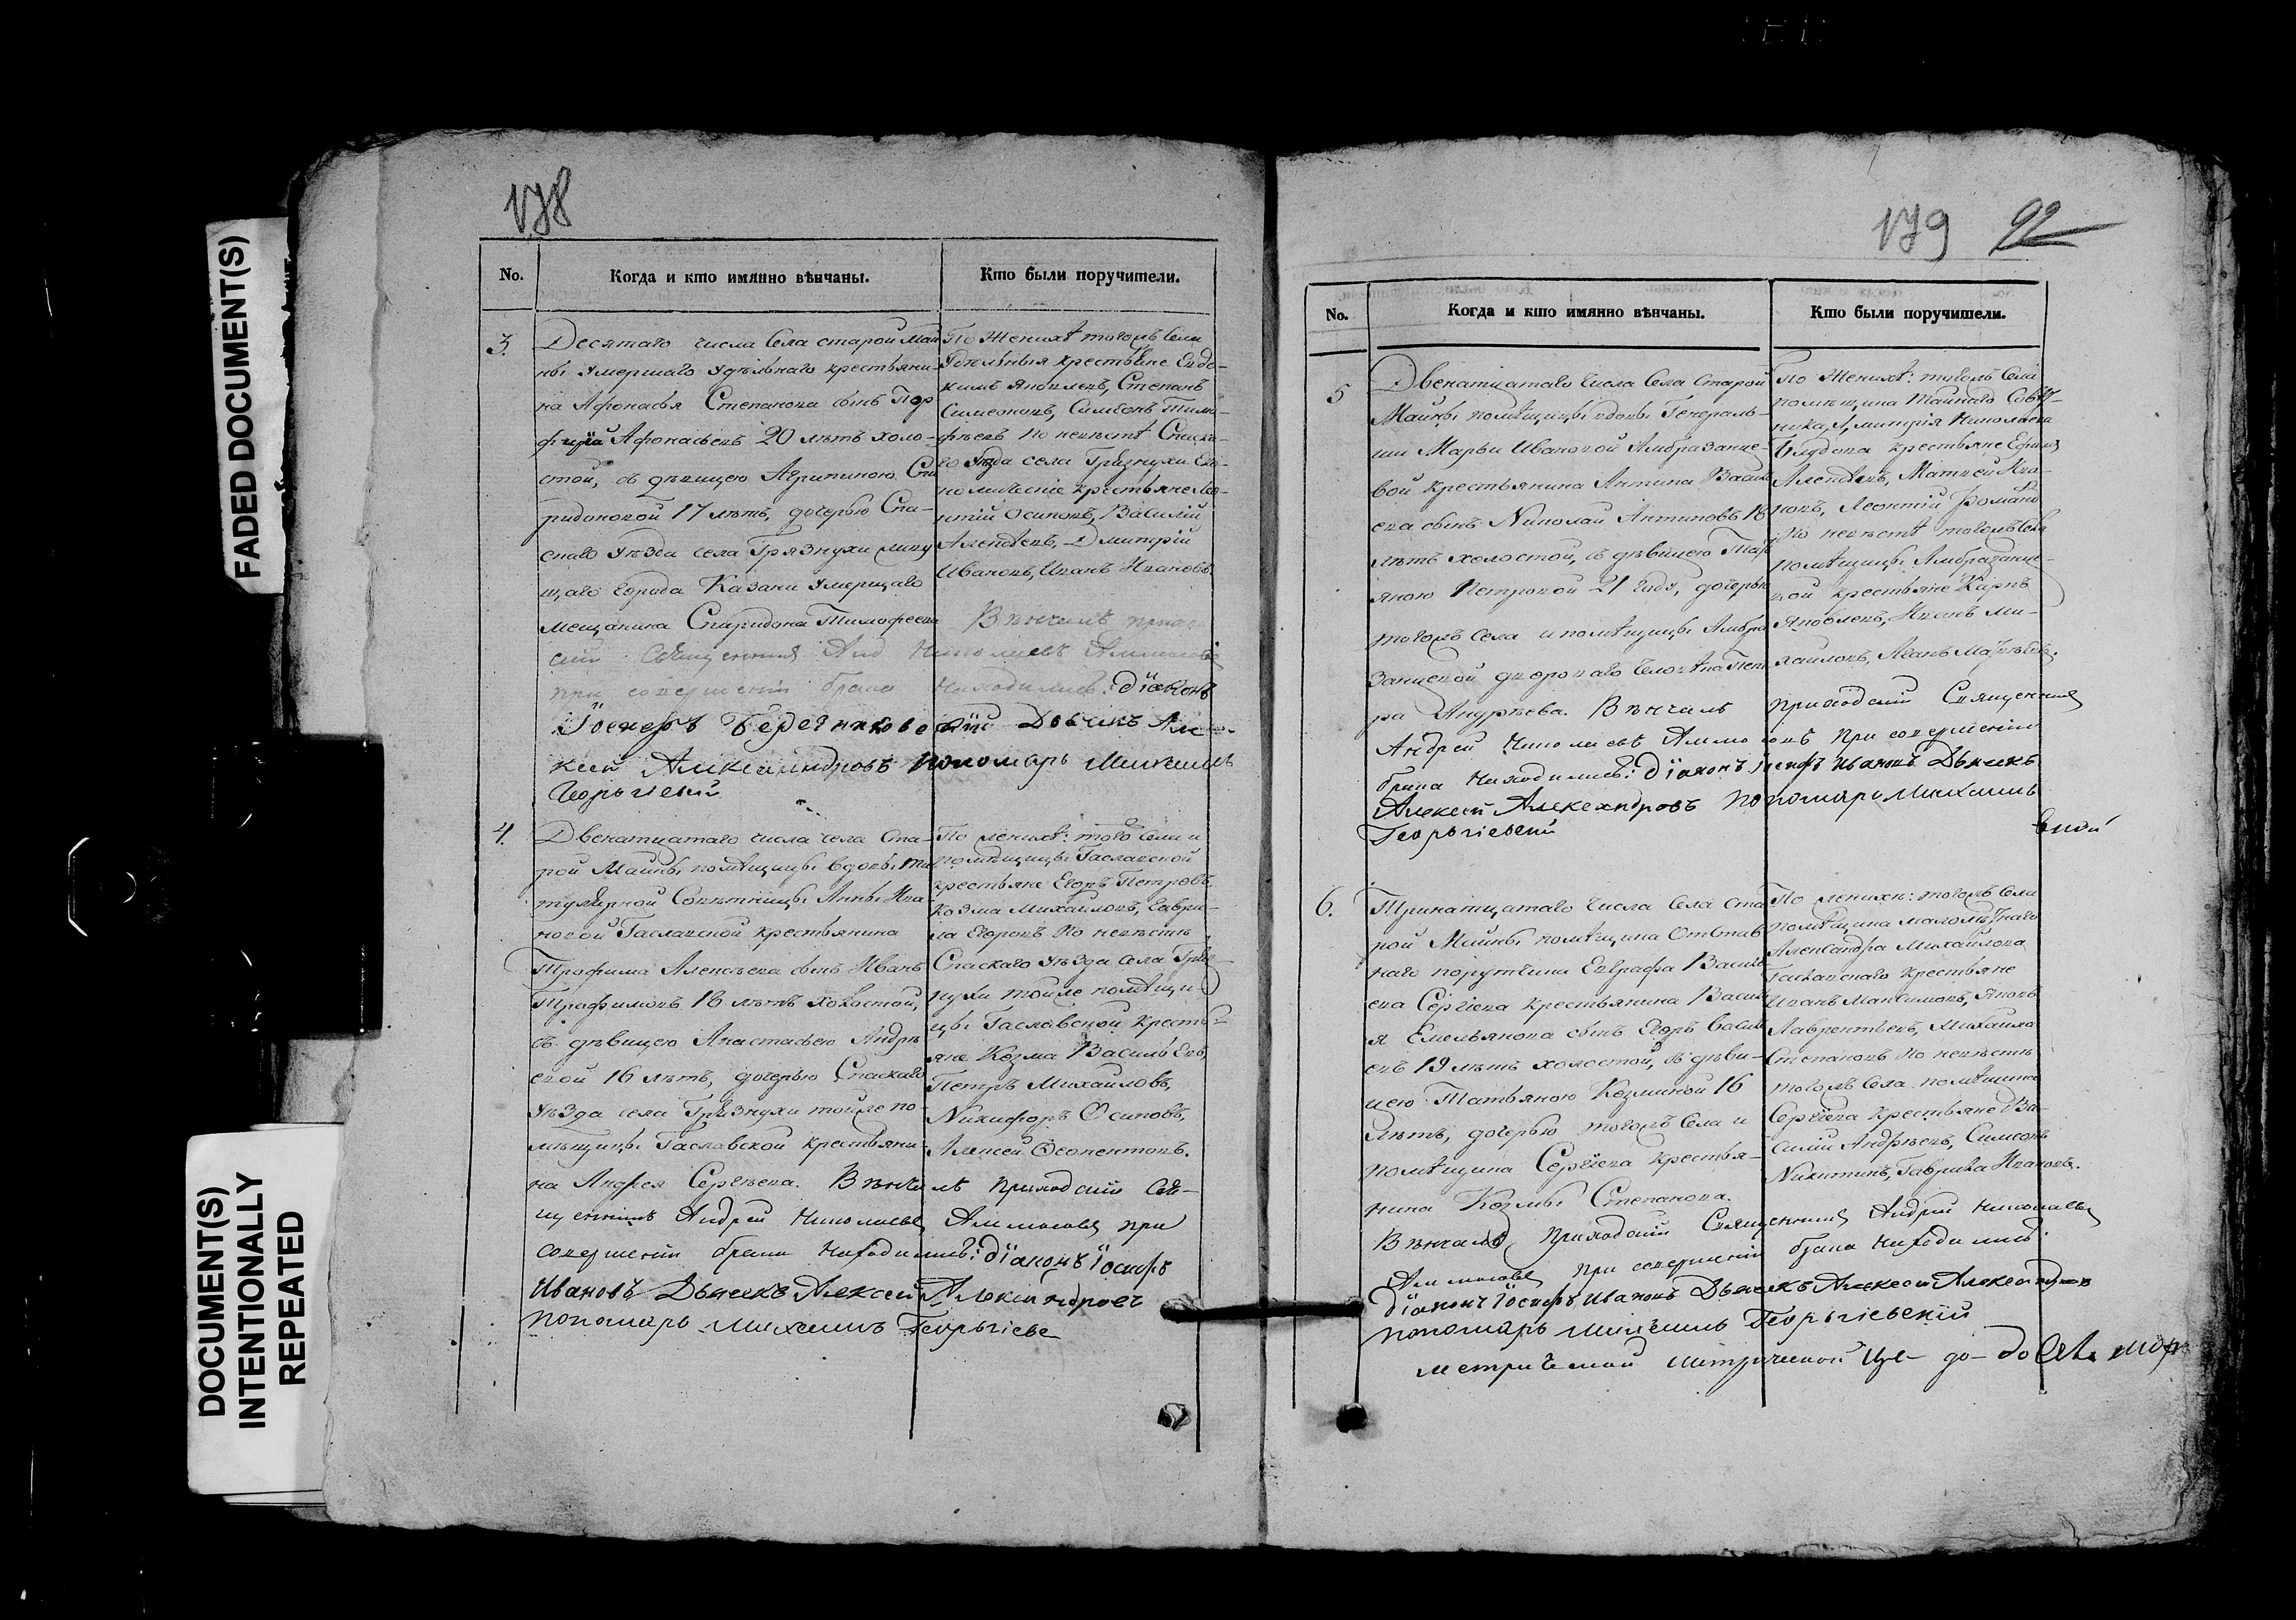 FADED DOCUMENT(S)
DOCUMENT(S)
INTENTIONALLY
REPEATED
178
No. Когда и кто имянно вѣнчаны. Кто были поручители.
3. Десятаго числа Села старой Май
ны умершаго удѣльнаго крестьяни-
на Афонасья Степанова сынъ Пор
фирій Афонасьевъ 20 лѣтъ холо-
стой, съ дѣвицею Агрипиною Спи
ридоновой 17 лѣтъ, дочерью Спа-
скаго уѣзда села Грязнухи
города Казани умершаго
мещанина Спиридона Тимофеева
По Женихѣ тогожъ Села
Удѣльныя крестьяне Евдо-
кимъ Яковлевъ, Степанъ
Симеоновъ, Симеонъ Тимо-
фѣевъ По невѣстѣ Спаска-
го уѣзда села Грязнухи
крестьяне Лео-
нтій Осиповъ, Василій
Алексѣевъ, Дмитрій
Ивановъ, Иванъ Ивановъ.
Вѣнчалъ прихо
скій Священникъ Анд Николаевъ
при совершеніи брака находились: діаконъ
Іосифъ Дьячекъ Але
ксей Александровъ пономарь Михаилъ
Георгіевскій
4. Двенатцатаго числа села Ста-
рой Майны помѣщицы вдовы ти
тулярной Совѣтницы Анны Ива
новой Гаславской крестьянина
Трофима Алексѣева сынъ Иванъ
Трофимовъ 16 лѣтъ холостой,
съ дѣвицею Анастасьею Андрѣ
евой 16 лѣтъ, дочерью Спаскаго
уѣзда села Грязнухи тойже по-
мѣщицы Гаславской крестьяни-
на Андрея Сергѣева. Вѣнчалъ приходскій Свя-
щенникъ Андрей Николаевъ при
совершеніи брака находились: діаконъ Іосифъ
Ивановъ Дьячекъ Алексей Александровъ
пономарь Михаилъ Георгіевс
По женихѣ: того Села и
помѣщицы Гаславской
крестьяне Егоръ Петровъ,
Козма Михайловъ, Гаври-
ла Егоровъ По невѣстѣ
Спаскаго уѣзда Села Гряз-
нухи тойже помѣщи-
цы Гаславской Кресть-
яне Козма Васильевъ,
Петръ Михайловъ,
Никифоръ Осиповъ,
Алексей Ѳеоктистовъ.
179 92
No. Когда и кто имянно вѣнчаны. Кто были поручители.
5 Двенатцатаго числа Села Старой
Майны помѣщицы вдовы Генераль-
ши Марьи Ивановой Амбразанце-
вой Крестьянина Антипа Василь
ева сынъ Николай Антиповъ 18
лѣтъ холостой, съ дѣвицею Тать
яною Петровой 21 году, дочерью
тогожъ села и помѣщицы Амбра
занцевой двороваго человѣка Пет
ра Андрѣева. Вѣнчалъ приходскій Священникъ
Андрей Николаевъ при совершеніи
брака находились: діаконъ Іосифъ Ивановъ Дьячекъ
Алексей Александровъ пономарь Михаилъ
Георгіевскій
По Женихѣ: тогожъ Села
помѣщика Тайнаго Совѣт-
ника Дмитрія Николаева
Блудова крестьяне Ефимъ
Алексѣевъ, Матвей Ива-
новъ, Леонтій Романо
новъ, По невѣстѣ тогожъ Села
помѣщицы Амбразанце-
вой крестьяне Карпъ
Яковлевъ, Иванъ Ми-
хайловъ, Иванъ Матвѣевъ.
6. Тринатцатаго числа Села Ста
рой Майны помѣщика Отстав
наго порутчика Евграфа Василь
ева Сергѣева крестьянина Васил
я Емельянова сынъ Егоръ Василь
евъ 19 лѣтъ холостой, съ дѣви-
цею Татьяною Козминой 16
лѣтъ, дочерью тогожъ Села и
помѣщика Сергѣева крестья-
нина Козмы Степанова.
Вѣнчалъ приходскій Священникъ Андрей Николаевъ
при совершеніи брака находились:
діаконъ Іосифъ Ивановъ Дьячекъ Алексей Александровъ
пономарь Михаилъ Георгіевскій
По женихѣ: тогожъ Села
помѣщика малолѣтнаго
Александра Михайлова
Гаславскаго Крестьяне
Иванъ Максимовъ, Яковъ
Лаврентьевъ, Михайла
Степановъ По невѣстѣ
тогожъ Села помѣщика
Сергѣева крестьяне Ва-
силій Андрѣевъ, Симеонъ
Никитинъ, Гаврила Ивановъ.